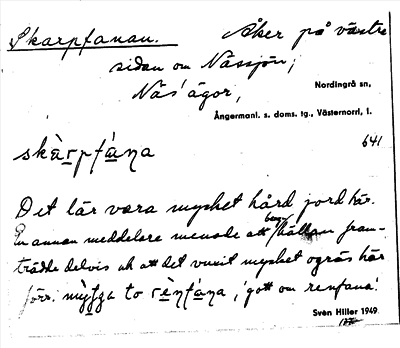 Skarpfanan. Åker på västre
sidan om Nässjön;
Näs' ägor,
Nordingrå sn,
Ångermanl. s. doms. tg., Västernorrl. l.
641
skàrpfána
Det lär vara mycket hård jord här.
En annan meddelare menade att berg/hällen fram-
trädde delvis och att det vuxit mycket ogräs här
förr. to rènfána, 'gott om renfana'.
Sven Hiller 1949